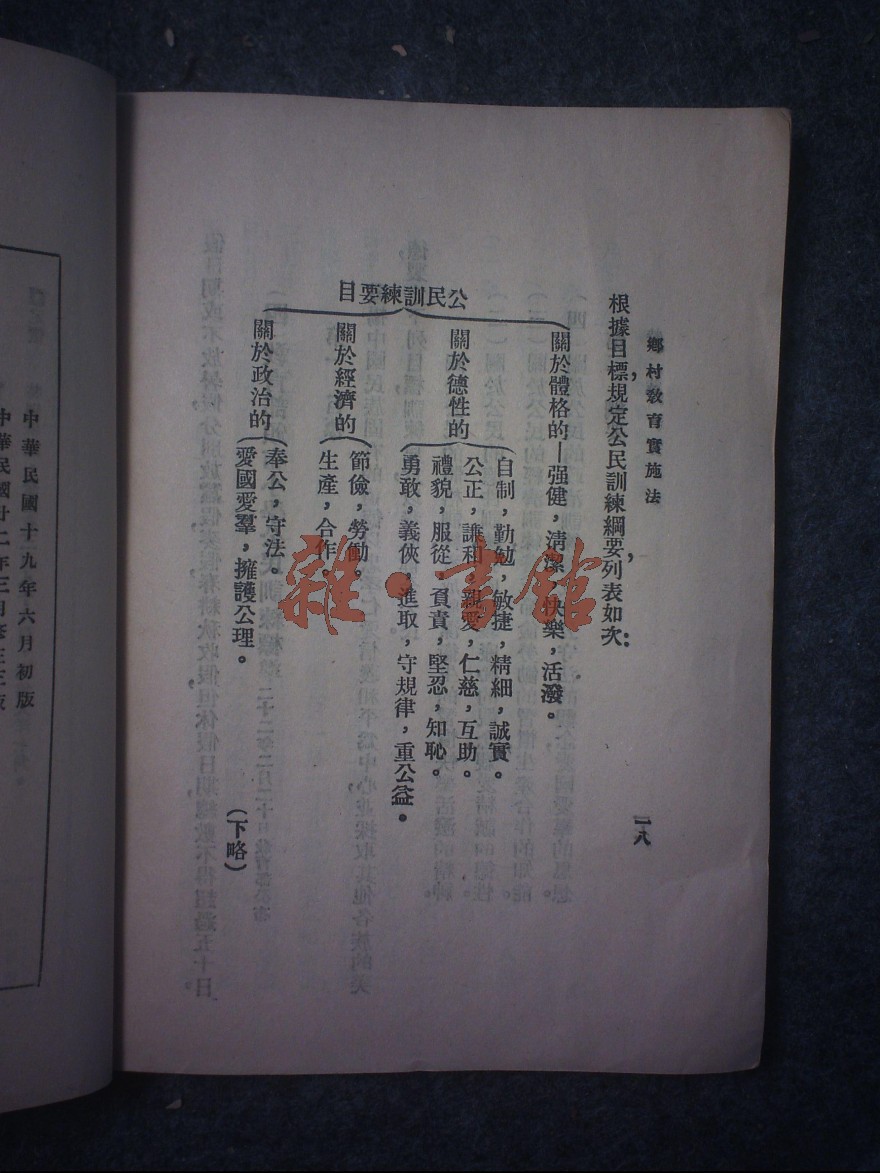 鄉村教育實施法
二八
根據目標，規定公民訓練綱要，列表如次：
公民訓練要目
關於體格的—强健，清潔，快樂，活潑。
關於德性的
自制，勤勉，敏捷，精細，誠實。
公正，謙和，親愛，仁慈，互助。
禮貌，服從，負責，堅忍，知恥。
勇敢，義俠，進取，守規律，重公益。
關於經濟的
節儉，勞働。
生產，合作。
關於政治的
奉公，守法。
愛國愛羣，擁護公理。
（下略）
中華民國十九年六月初版
中華民國廿二年三月
雜·書館